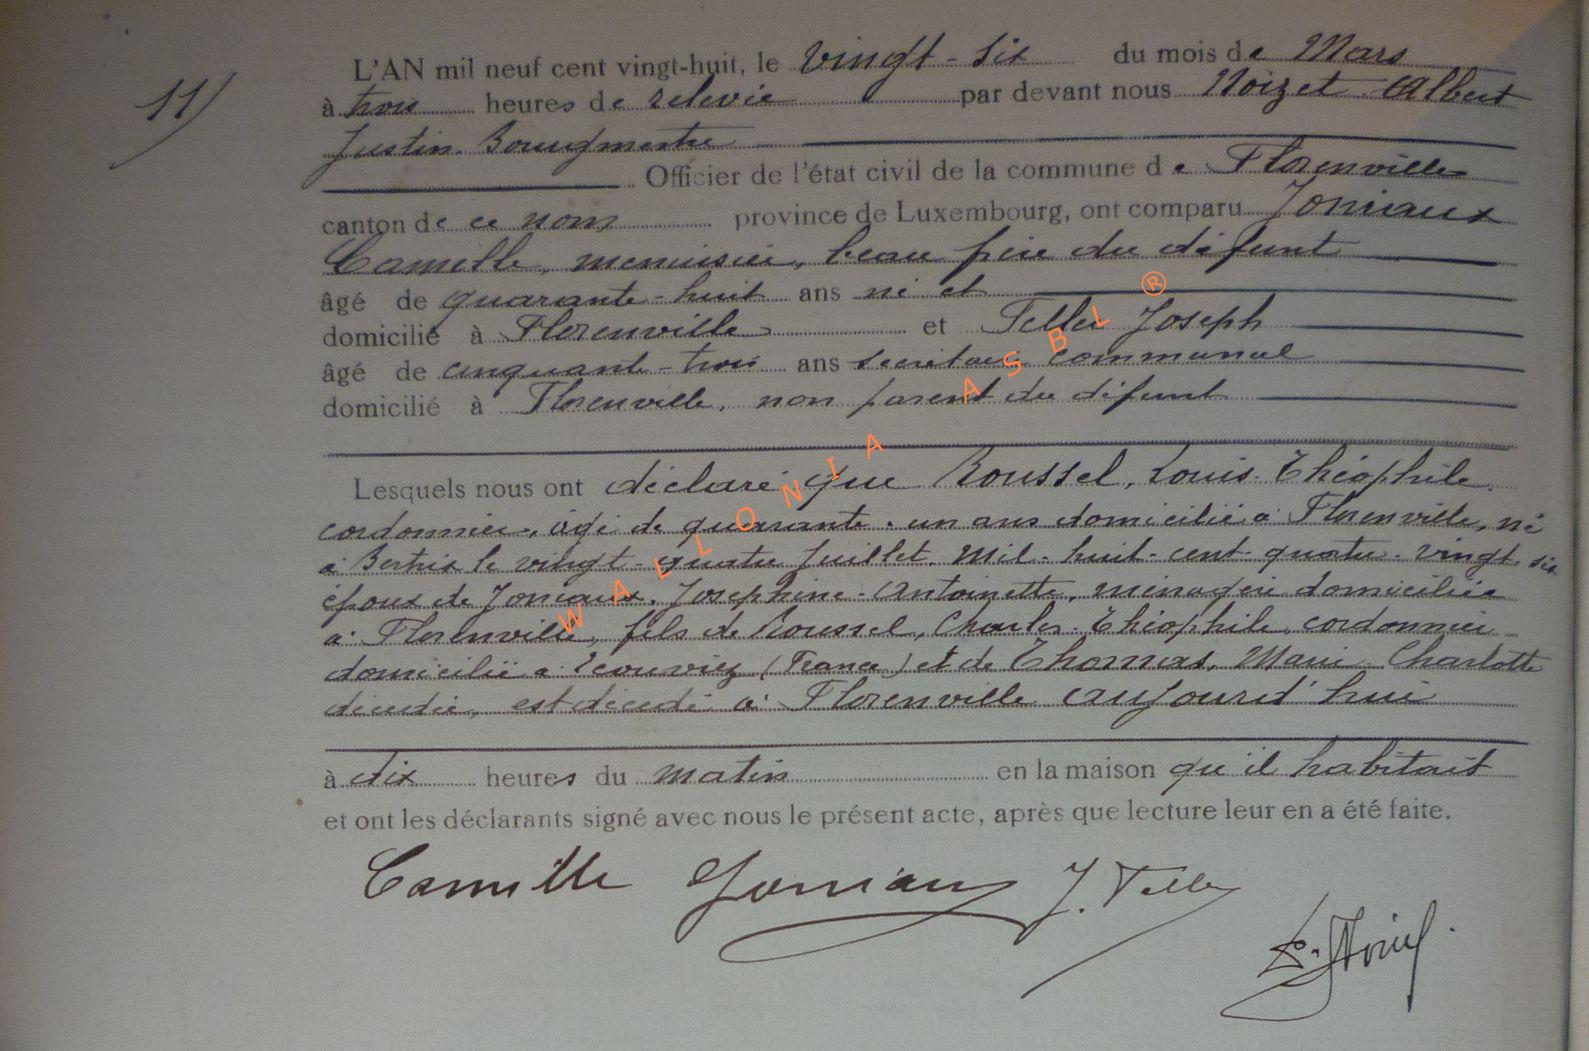 11)
L'AN mil neuf cent vingt-huit, le vingt-six du mois de Mars
à trois heures de relevée par devant nous Noizet Albert
Justin Bourgmestre
Officier de l'état civil de la commune de Florenville
canton de ce nom province de Luxembourg, ont comparu Joniaux
Camille, menuisier, beau frère du défunt
âgé de quarante-huit ans né et
domicilié à Florenville et Teller Joseph
âgé de cinquante-trois ans secrétaire communal
domicilié à Florenville, non parent du défunt
Lesquels nous ont déclaré que Roussel, Louis Théophile
cordonnier, âgé de quarante-un ans domicilié à Florenville, né
à Bertrix le vingt-quatre Juillet mil-huit-cent-quatre-vingt six
époux de Joniaux, Josephine-Antoinette, ménagère domiciliée
à Florenville, fils de Roussel, Charles-Théophile, cordonnier
domicilié à Ecouviez (France) et de Thomas, Marie Charlotte
décédée, est décédé à Florenville aujourd'hui
à dix heures du matin en la maison qu'il habitait
et ont les déclarants signé avec nous le présent acte, après que lecture leur en a été faite.
Camille Joniaux J. Teller
WALLONIA ASBL ®